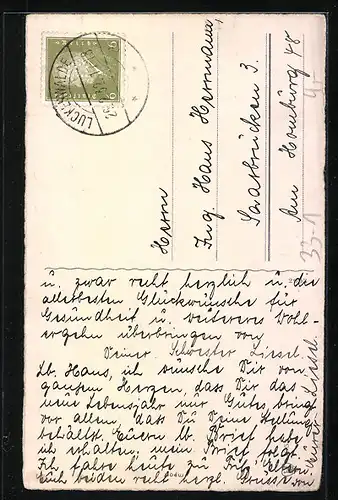 LUCKENWALDE
6
6
Herrn
Ing. Hans Herrmann,
Saarbrücken 3.
Am Homburg 48
33-1
u. zwar recht herzlich u. die
allerbesten Glückwünsche für
Gesundheit u. weiteres Wohl-
ergehn überbringen von
Deiner Schwester Liesel.
Lb. Hans, ich wünsche Dir von
ganzem Herzen, dass Dir das
neue Lebensjahr nur Gutes bringt
vor allem, dass Du Deine Stellung
behältst. Euern lb. Brief habe
ich erhalten, mein Brief folgt.
Ich fahre heute zu
Euch beiden recht herzl. Grüsse von
Eurer Liesel